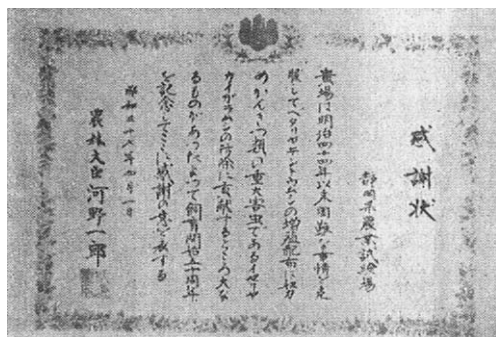 感謝状
静岡県農業試験場
貴場は明治四十四年以来困難な事情を克
服してベダリヤテントウムシの増殖配布に努力
めかんきつ類の重大害虫であるイセリヤ
カイガラムシの防除に貢献するところ大な
るものがあったよって飼育開始五十周年
を記念してここに感謝の意を表する
昭和三十六年 月一日
農林大臣 河野一郎